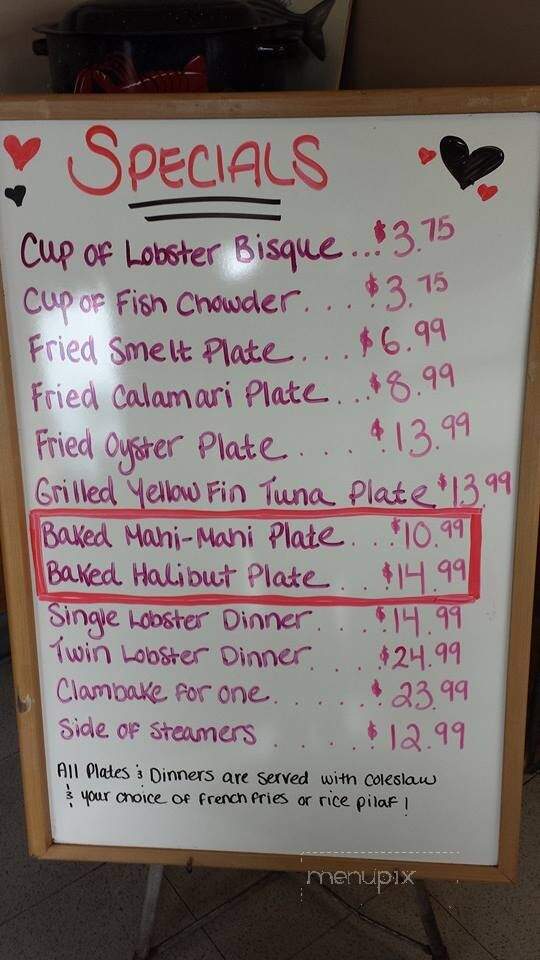 SPECIALS
Cup of Lobster Bisque...$3.75
Cup of Fish Chowder....$3.75
Fried Smelt Plate....$6.99
Fried Calamari Plate...$8.99
Fried Oyster Plate....$13.99
Grilled Yellow Fin Tuna Plate $13.99
Baked Mahi-Mahi Plate...$10.99
Baked Halibut Plate....$14.99
Single Lobster Dinner....$14.99
Twin Lobster Dinner....$24.99
Clambake for one......$23.99
Side of Steamers.....$12.99
All Plates & Dinners are served with coleslaw
& your choice of french fries or rice pilaf!
menupix